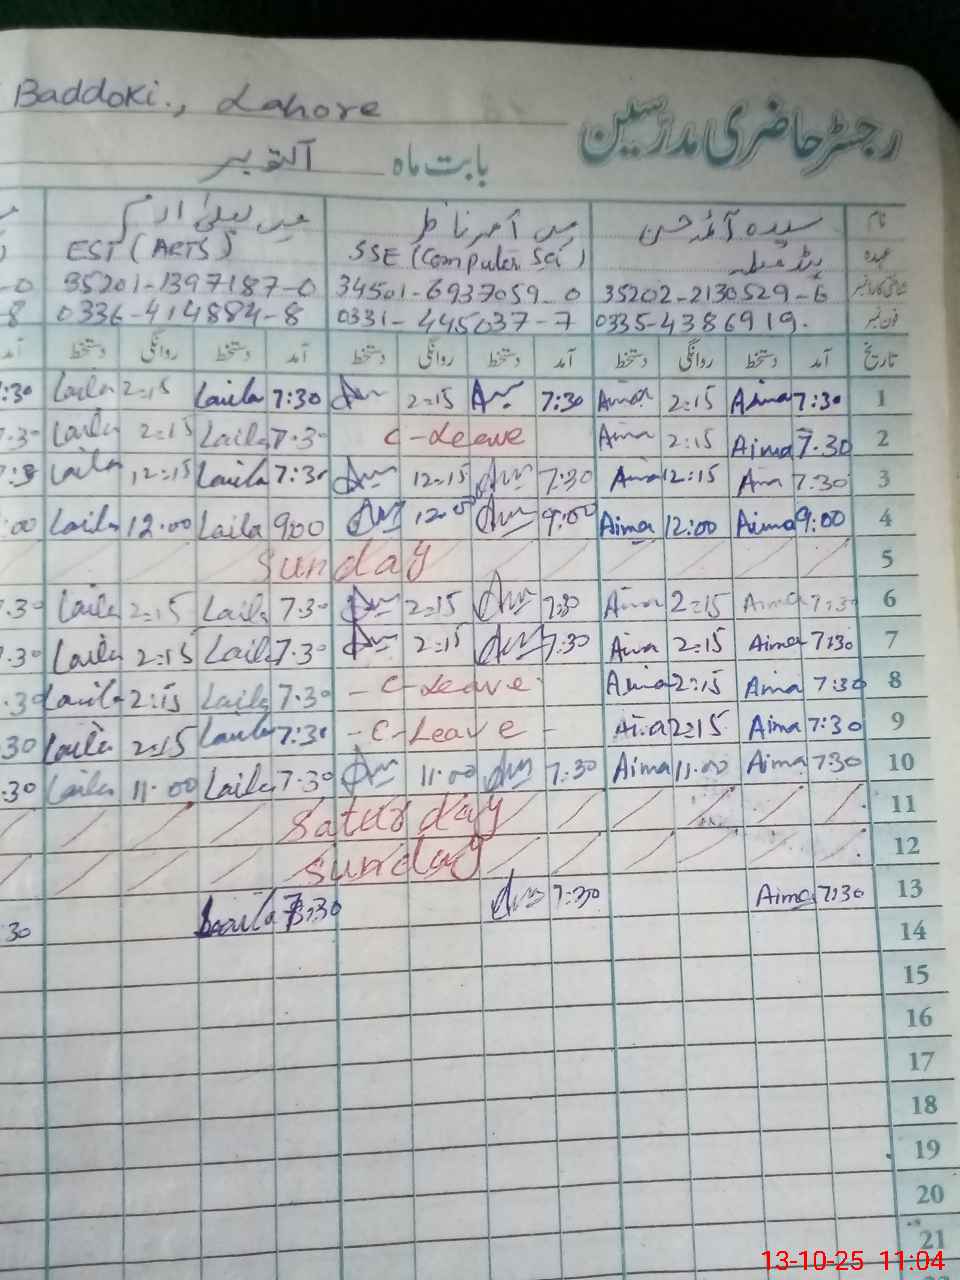 Baddoki., Lahore
رجسٹر حاضری مدرسین
بابت ماہ اکتوبر
نام سیدہ آئمہ حسن مس
عہدہ ہیڈ SSE (Computer Sci) EST (ARTS)
شناختی کارڈ نمبر 35202-2130529-6 34501-6937059-0 35201-1397187-0 -0
فون نمبر 0335-4386919. 0331-445037-7 0336-414884-8 -8
تاریخ آمد دستخط روانگی دستخط آمد دستخط روانگی دستخط آمد دستخط روانگی دستخط آمد
1 7:30 Aima 2:15 Aima 7:30 2:15 7:30 Laila 2:15 Laila :30
2 7.30 Aima 2:15 Aima C-Leave 7.30 Laila 2:15 Laila 7.30
3 7:30 Aima 12:15 Aima 7:30 12:15 7:30 Laila 12:15 Laila
4 9:00 Aima 12:00 Aima 9:00 12:00 9:00 Laila 12:00 Laila :00
5 Sunday
6 7:30 Aima 2:15 Aima 7:30 2:15 7.30 Laila 2:15 Laila 7.30
7 7:30 Aima 2:15 Aima 7:30 2:15 7.30 Laila 2:15 Laila 7.30
8 7:30 Aima 2:15 Aima -C-Leave- 7.30 Laila 2:15 Laila .30
9 7:30 Aima 2:15 Aima -C-Leave- 7:30 Laila 2:15 Laila 30
10 7:30 Aima 11:00 Aima 7:30 11:00 7.30 Laila 11:00 Laila .30
11 Saturday
12 Sunday
13 7:30 Aima 7:30 7:30 Laila 30
14
15
16
17
18
19
20
21
13-10-25 11:04